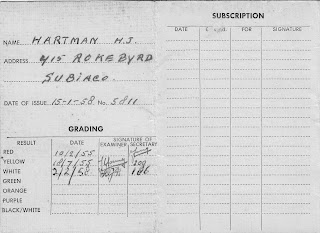 NAME HARTMAN H.J.
ADDRESS 415 ROKEBYRD
SUBIACO.
DATE OF ISSUE 15-1-58 No. 5811
GRADING
RESULT DATE SIGNATURE OF EXAMINER SECRETARY
RED 10/2/55
YELLOW 18/7/55
WHITE 2/2/58 186
GREEN
ORANGE
PURPLE
BLACK/WHITE
SUBSCRIPTION
DATE FOR SIGNATURE